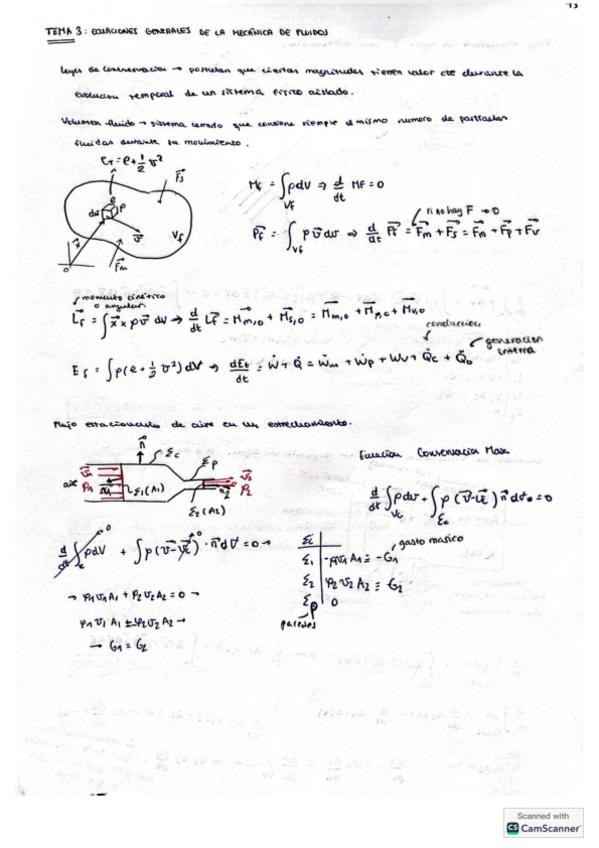 TEMA 3: ECUACIONES GENERALES DE LA MECÁNICA DE FLUIDOS
Leyes de conservacion → postulan que ciertas magnitudes tienen valor cte durante la
evolucion temporal de un sistema fisico aislado.
Volumen fluido → sistema cerrado que contiene siempre el mismo numero de particulas
fluidas durante su movimiento.
e_T = e + 1/2 v²
F⃗s
e
ρ
dv
v⃗
V_f
x⃗
0
F⃗m
M_f = ∫_{V_f} ρdV ⇒ d/dt M_f = 0
si no hay F → 0
P⃗_f = ∫_{V_f} ρ v⃗ dv ⇒ d/dt P⃗_f = F⃗m + F⃗s = F⃗m + F⃗p + F⃗v
momento cinético
o angular.
L⃗_f = ∫ x⃗ × ρv⃗ dV → d/dt L⃗_f = M⃗m,o + M⃗s,o = M⃗m,o + M⃗p,o + M⃗v,o
conduccion
generacion
interna
E_f = ∫ρ(e + 1/2 v²)dV → dE_t/dt = Ẇ + Q̇ = Ẇm + Ẇp + Ẇv + Q̇c + Q̇o
Flujo estacionario de aire en un estrechamiento.
n⃗
Σc
Σp
aire
v⃗1
ρ1
n⃗1
Σ1(A1)
v⃗2
n⃗2
ρ2
Σ2(A2)
Ecuacion Conservacion Masa
d/dt ∫_{Vc} ρdv + ∫_{Σc} ρ(v⃗-v⃗c) n⃗ dσ = 0
d/dt ∫_{Vc} ρdV → 0 + ∫ρ(v⃗-v⃗c → 0) · n⃗ dσ = 0 →
Σc
gasto masico
Σ1 | -ρv1A1 ≡ -G1
Σ2 | ρ2v2A2 ≡ G2
Σp | 0
paredes
→ ρ1v1A1 + ρ2v2A2 = 0 →
ρ1v1A1 = ρ2v2A2 →
→ G1 = G2
Scanned with
CS CamScanner